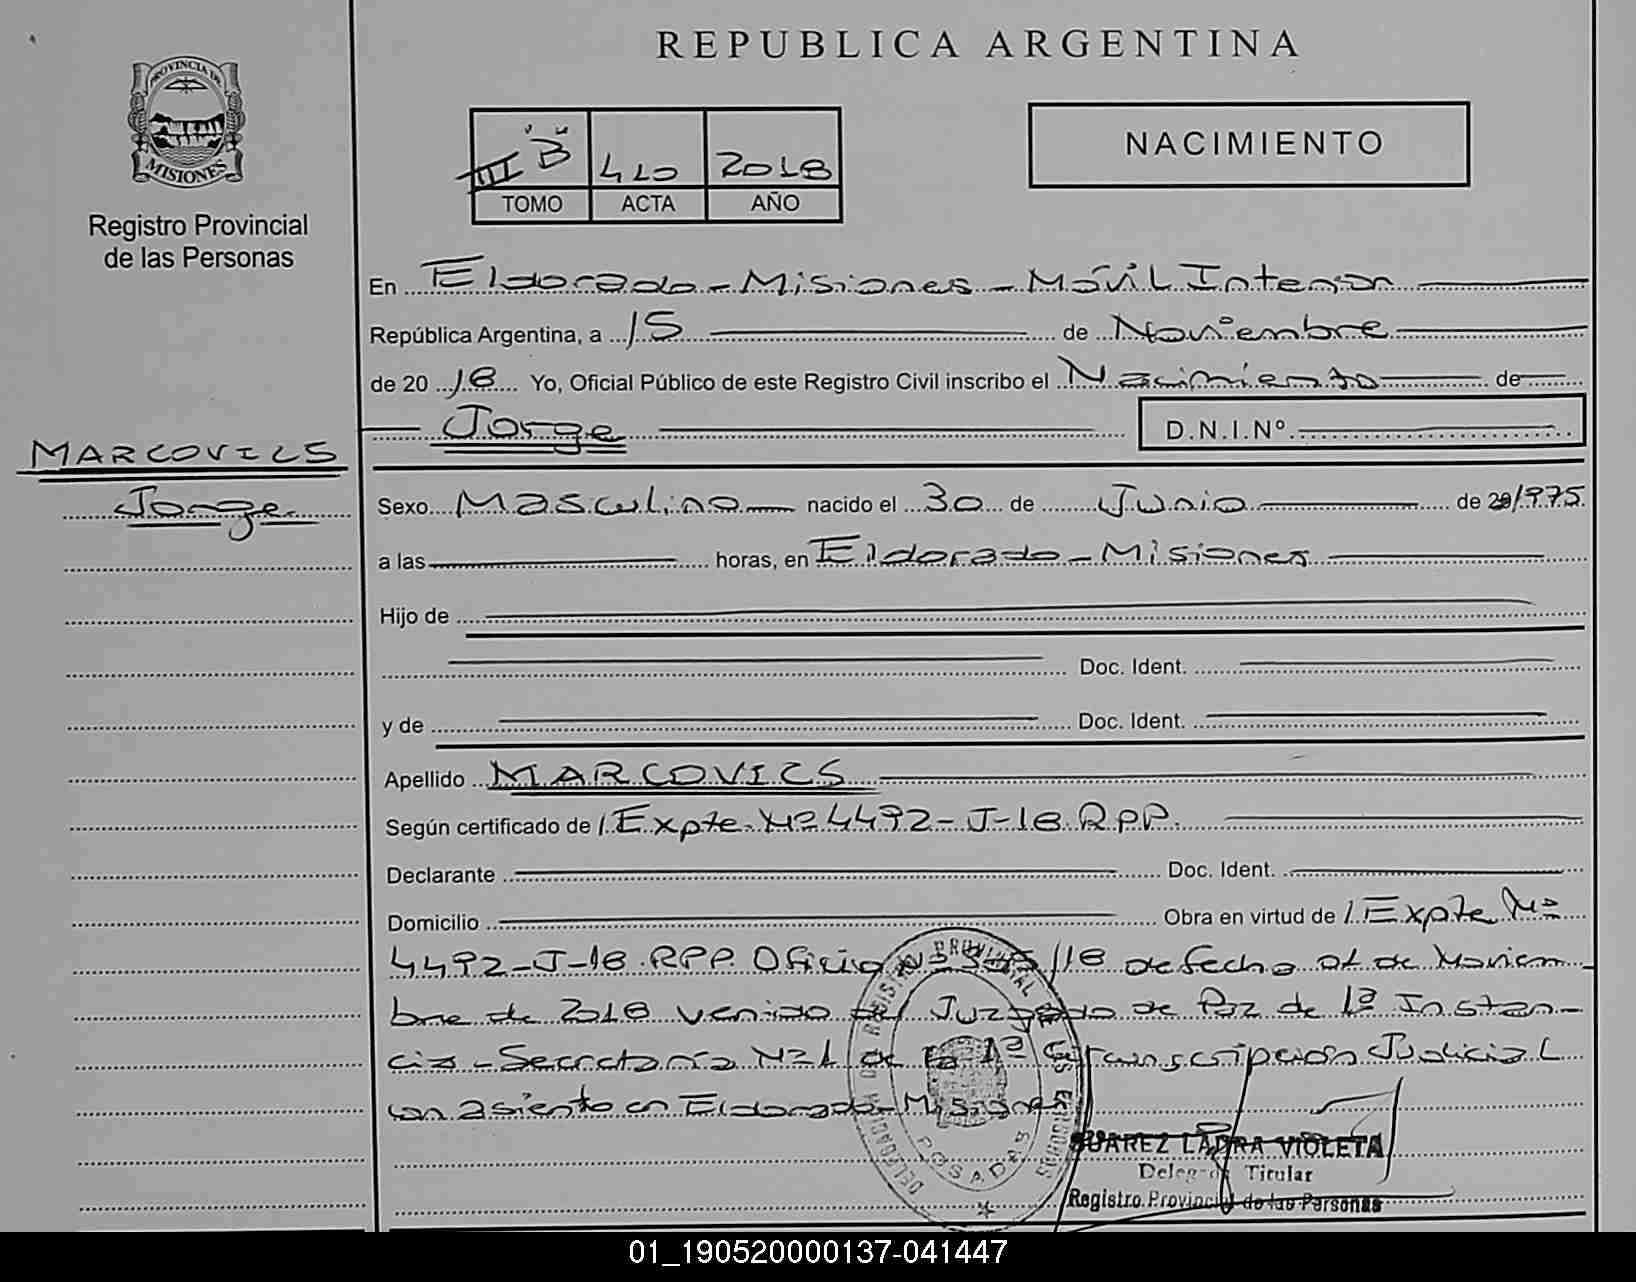 REPUBLICA ARGENTINA
PROVINCIA DE
MISIONES
Registro Provincial
de las Personas
III "B" 410 2018
TOMO ACTA AÑO
NACIMIENTO
En Eldorado - Misiones - Móvil Interior
República Argentina, a 15 de Noviembre
de 2018 Yo, Oficial Público de este Registro Civil inscribo el Nacimiento de
Jorge D.N.I.Nº
MARCOVICS
Jorge
Sexo Masculino nacido el 30 de Junio de 1975
a las horas, en Eldorado - Misiones
Hijo de
Doc. Ident.
y de Doc. Ident.
Apellido MARCOVICS
Según certificado de / Expte. Nº 4492-J-18 RPP.
Declarante Doc. Ident.
Domicilio Obra en virtud de / Expte Nº
4492-J-18. RPP. Oficio Nº /18 de fecha 01 de Noviem
bre de 2018 venido del Juzgado de Paz de 1ª Instan-
cia - Secretaría Nº 1 de la 1ª Circunscripción Judicial
con asiento en Eldorado - Misiones
SUAREZ LADRA VIOLETA
Delegada Titular
Registro Provincial de las Personas
DELEGACION REGISTRO PROVINCIAL DE LAS PERSONAS
POSADAS
01_190520000137-041447